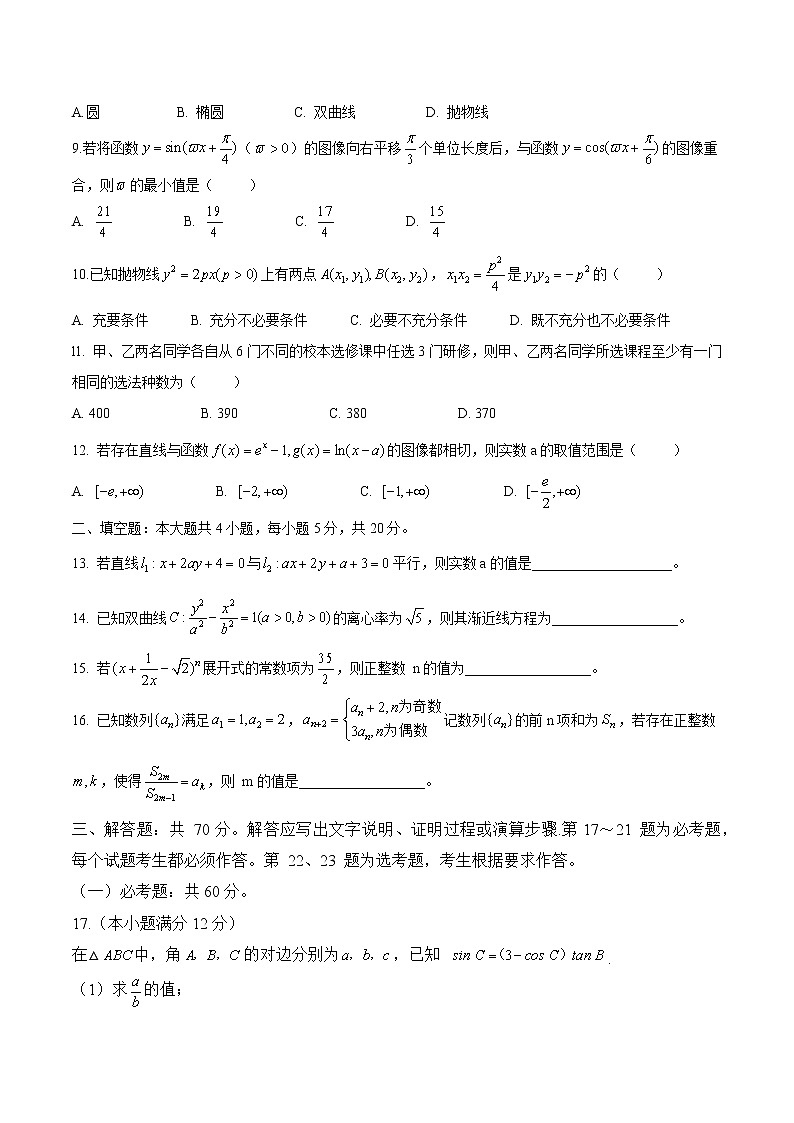 A.圆 B. 椭圆 C. 双曲线 D. 抛物线
9.若将函数 y = sin(ϖx + π/4)（ϖ > 0）的图像向右平移 π/3 个单位长度后，与函数 y = cos(ϖx + π/6) 的图像重
合，则ϖ的最小值是（ ）
A. 21/4 B. 19/4 C. 17/4 D. 15/4
10.已知抛物线 y² = 2px(p > 0) 上有两点 A(x₁, y₁), B(x₂, y₂)，x₁x₂ = p²/4 是 y₁y₂ = −p² 的（ ）
A. 充要条件 B. 充分不必要条件 C. 必要不充分条件 D. 既不充分也不必要条件
l1. 甲、乙两名同学各自从 6 门不同的校本选修课中任选 3 门研修，则甲、乙两名同学所选课程至少有一门
相同的选法种数为（ ）
A. 400 B. 390 C. 380 D. 370
12. 若存在直线与函数 f(x) = eˣ − 1, g(x) = ln(x − a) 的图像都相切，则实数 a 的取值范围是（ ）
A. [−e, +∞) B. [−2, +∞) C. [−1, +∞) D. [−e/2, +∞)
二、填空题：本大题共 4 小题，每小题 5 分，共 20 分。
13. 若直线 l₁ : x + 2ay + 4 = 0 与 l₂ : ax + 2y + a + 3 = 0 平行，则实数 a 的值是____________________。
14. 已知双曲线 C : y²/a² − x²/b² = 1(a > 0, b > 0) 的离心率为 √5，则其渐近线方程为__________________。
15. 若 (x + 1/(2x) − √2)ⁿ 展开式的常数项为 35/2，则正整数 n 的值为__________________。
16. 已知数列{aₙ}满足 a₁ = 1, a₂ = 2，aₙ₊₂ = { aₙ + 2, n为奇数 3aₙ, n为偶数 记数列{aₙ}的前 n 项和为 Sₙ，若存在正整数
m, k，使得 S₂ₘ/S₂ₘ₋₁ = aₖ，则 m 的值是__________________。
三、解答题：共 70 分。解答应写出文字说明、证明过程或演算步骤.第 17～21 题为必考题，
每个试题考生都必须作答。第 22、23 题为选考题，考生根据要求作答。
（一）必考题：共 60 分。
17.（本小题满分 12 分）
在△ABC中，角 A，B，C 的对边分别为 a，b，c，已知 sin C =（3− cos C）tan B .
（1）求 a/b 的值；